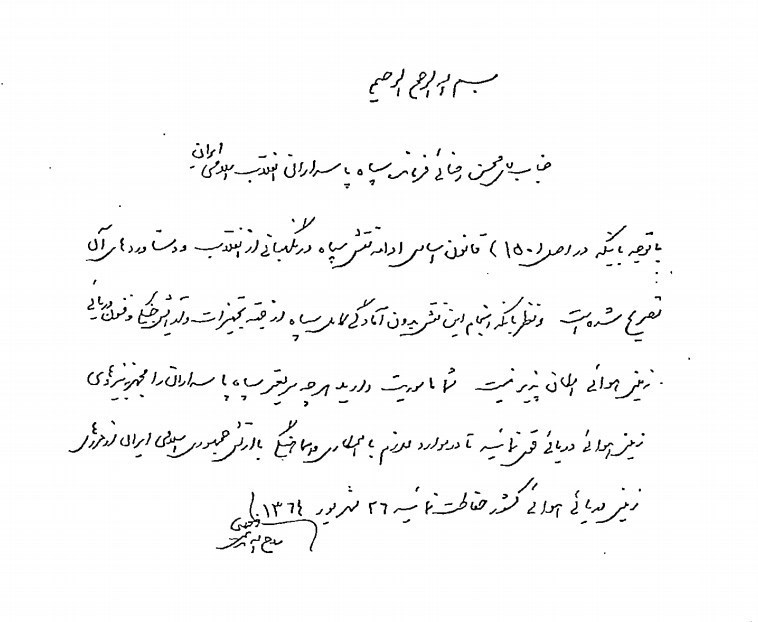 بسم الله الرحمن الرحیم
جناب آقای محسن رضائی فرمانده سپاه پاسداران انقلاب اسلامی ایران
با توجه باینکه در اصل (۱۵۰) قانون اساسی ادامه نقش سپاه در نگهبانی از انقلاب و دستاوردهای آن
تصریح شده است و نظر بانکه انجام این نقش بدون آمادگی کامل سپاه از نظر تجهیزات و فنون دریائی
زمینی هوائی امکان پذیر نیست شما ماموریت دارید هرچه سریعتر سپاه پاسداران را مجهز به نیروی
زمینی هوائی دریائی قوی نمائید تا در موارد لازم با همکاری و هماهنگی با ارتش جمهوری اسلامی ایران از مرزهای
زمینی دریائی هوائی کشور حفاظت نمائید ۲۶ شهریور ۱۳۶۴
روح الله الموسوی الخمینی